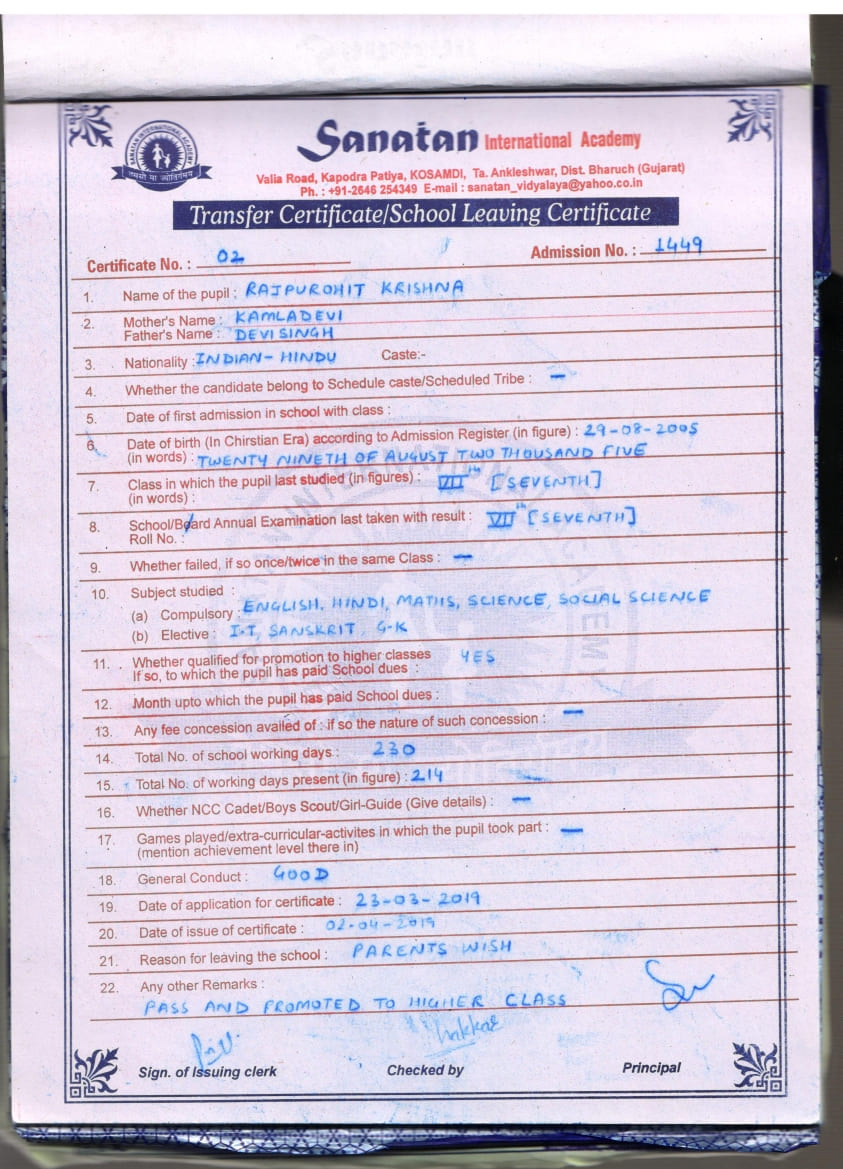 SANATAN INTERNATIONAL ACADEMY
तमसो मा ज्योतिर्गमय
Sanatan International Academy
Valia Road, Kapodra Patiya, KOSAMDI, Ta. Ankleshwar, Dist. Bharuch (Gujarat)
Ph. : +91-2646 254349 E-mail : sanatan_vidyalaya@yahoo.co.in
Transfer Certificate/School Leaving Certificate
Certificate No. : 02 Admission No. : 1449
1. Name of the pupil : RAJPUROHIT KRISHNA
2. Mother's Name : KAMLADEVI
Father's Name : DEVISINGH
3. Nationality : INDIAN - HINDU Caste:-
4. Whether the candidate belong to Schedule caste/Scheduled Tribe : —
5. Date of first admission in school with class :
6. Date of birth (In Chirstian Era) according to Admission Register (in figure) : 29-08-2005
(in words) : TWENTY NINETH OF AUGUST TWO THOUSAND FIVE
7. Class in which the pupil last studied (in figures) : VII th [SEVENTH]
(in words) :
8. School/Board Annual Examination last taken with result : VII th [SEVENTH]
Roll No. :
9. Whether failed, if so once/twice in the same Class : —
10. Subject studied :
(a) Compulsory : ENGLISH, HINDI, MATHS, SCIENCE, SOCIAL SCIENCE
(b) Elective : I.T, SANSKRIT, G-K
11. Whether qualified for promotion to higher classes YES
If so, to which the pupil has paid School dues :
12. Month upto which the pupil has paid School dues :
13. Any fee concession availed of : if so the nature of such concession : —
14. Total No. of school working days : 230
15. Total No. of working days present (in figure) : 214
16. Whether NCC Cadet/Boys Scout/Girl-Guide (Give details) : —
17. Games played/extra-curricular-activites in which the pupil took part : —
(mention achievement level there in)
18. General Conduct : GOOD
19. Date of application for certificate : 23-03-2019
20. Date of issue of certificate : 02-04-2019
21. Reason for leaving the school : PARENTS WISH
22. Any other Remarks :
PASS AND PROMOTED TO HIGHER CLASS
Sign. of Issuing clerk Checked by Principal